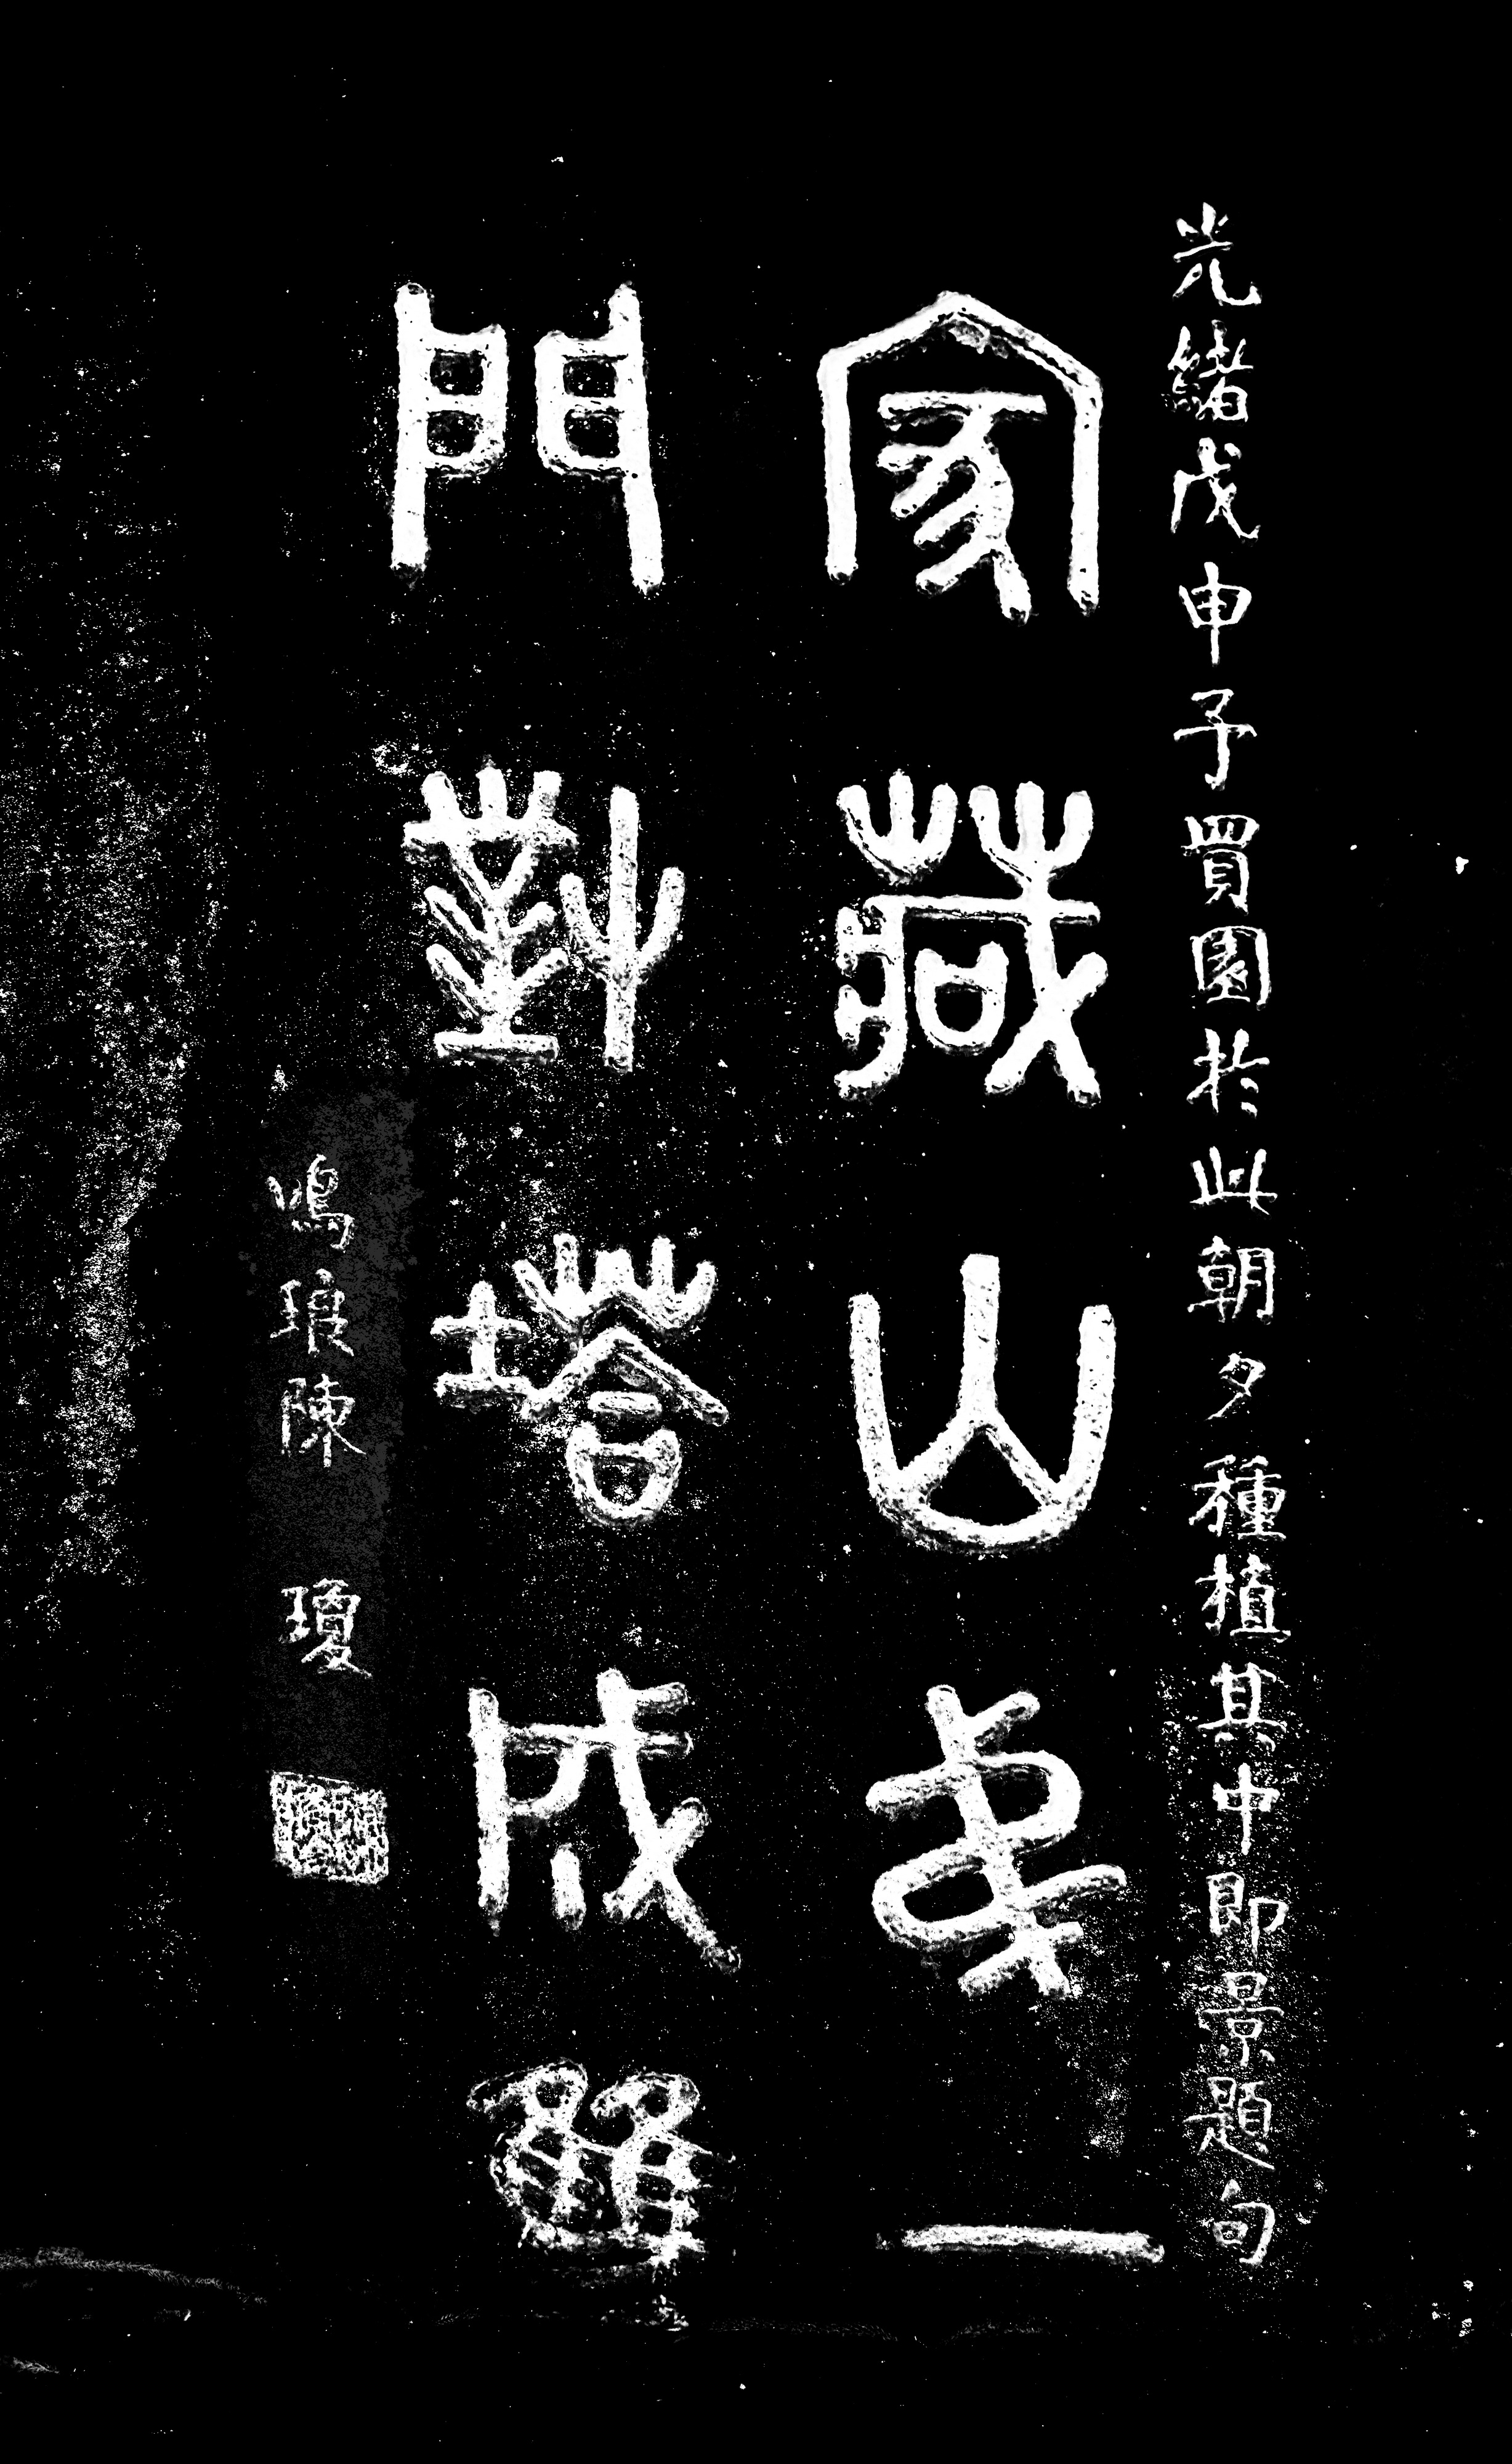 光緒戊申予買園於此朝夕種植其中即景題句
家藏山弟一
門對塔成雙
鳴琅陳 瓊